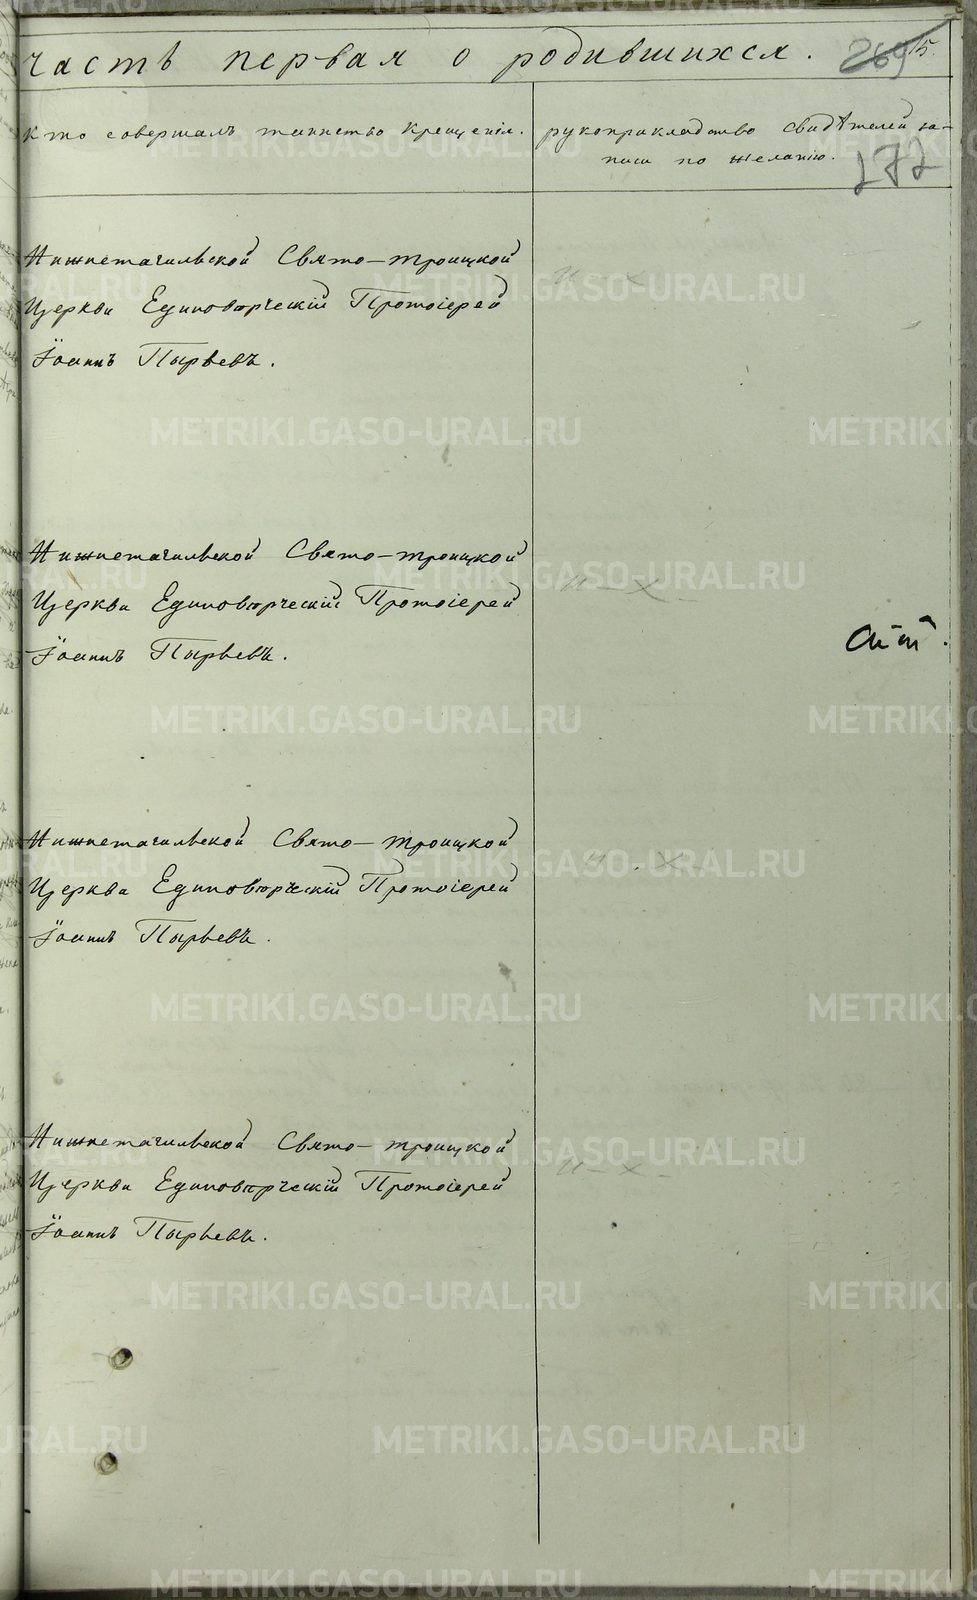 часть первая о родившихся. 269 15.
кто совершалъ таинство крещенія. рукоприкладство свидѣтелей за-
писи по желанію.
272
Нижнетагильской Свято-троицкой
Церкви Единовѣрческій Протоіерей
Іоаннъ Пырьевъ.
Нижнетагильской Свято-троицкой
Церкви Единовѣрческій Протоіерей
Іоаннъ Пырьевъ.
Нижнетагильской Свято-троицкой
Церкви Единовѣрческій Протоіерей
Іоаннъ Пырьевъ.
Нижнетагильской Свято-троицкой
Церкви Единовѣрческій Протоіерей
Іоаннъ Пырьевъ.
METRIKI.GASO-URAL.RU